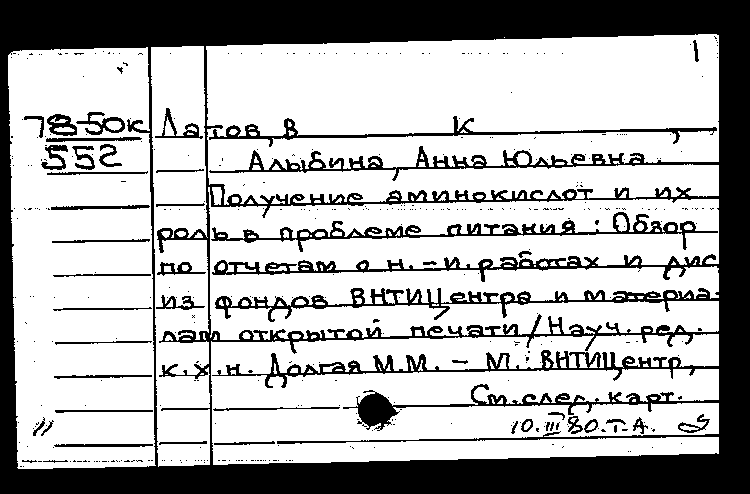 1
78-50к Латов, В К ,
552 Алыбина, Анна Юльевна.
Получение аминокислот и их
роль в проблеме питания: Обзор
по отчетам о н.-и. работах и дис.
из фондов ВНТИЦентра и материа-
лам открытой печати/Науч. ред.
к.х.н. Долгая М.М. - М.: ВНТИЦентр,
См. след. карт.
10.III 80. Т.А.